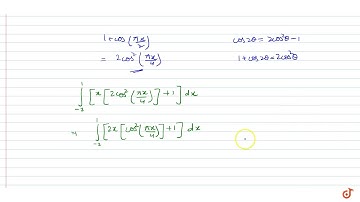 1+cos(πx/2) cos2θ = 2cos²θ-1
= 2cos²(πx/4) 1+cos2θ=2cos²θ
∫₋₂¹ [x[2cos²(πx/4)]+1] dx
= ∫₋₂¹ [2x[cos²(πx/4)]+1] dx